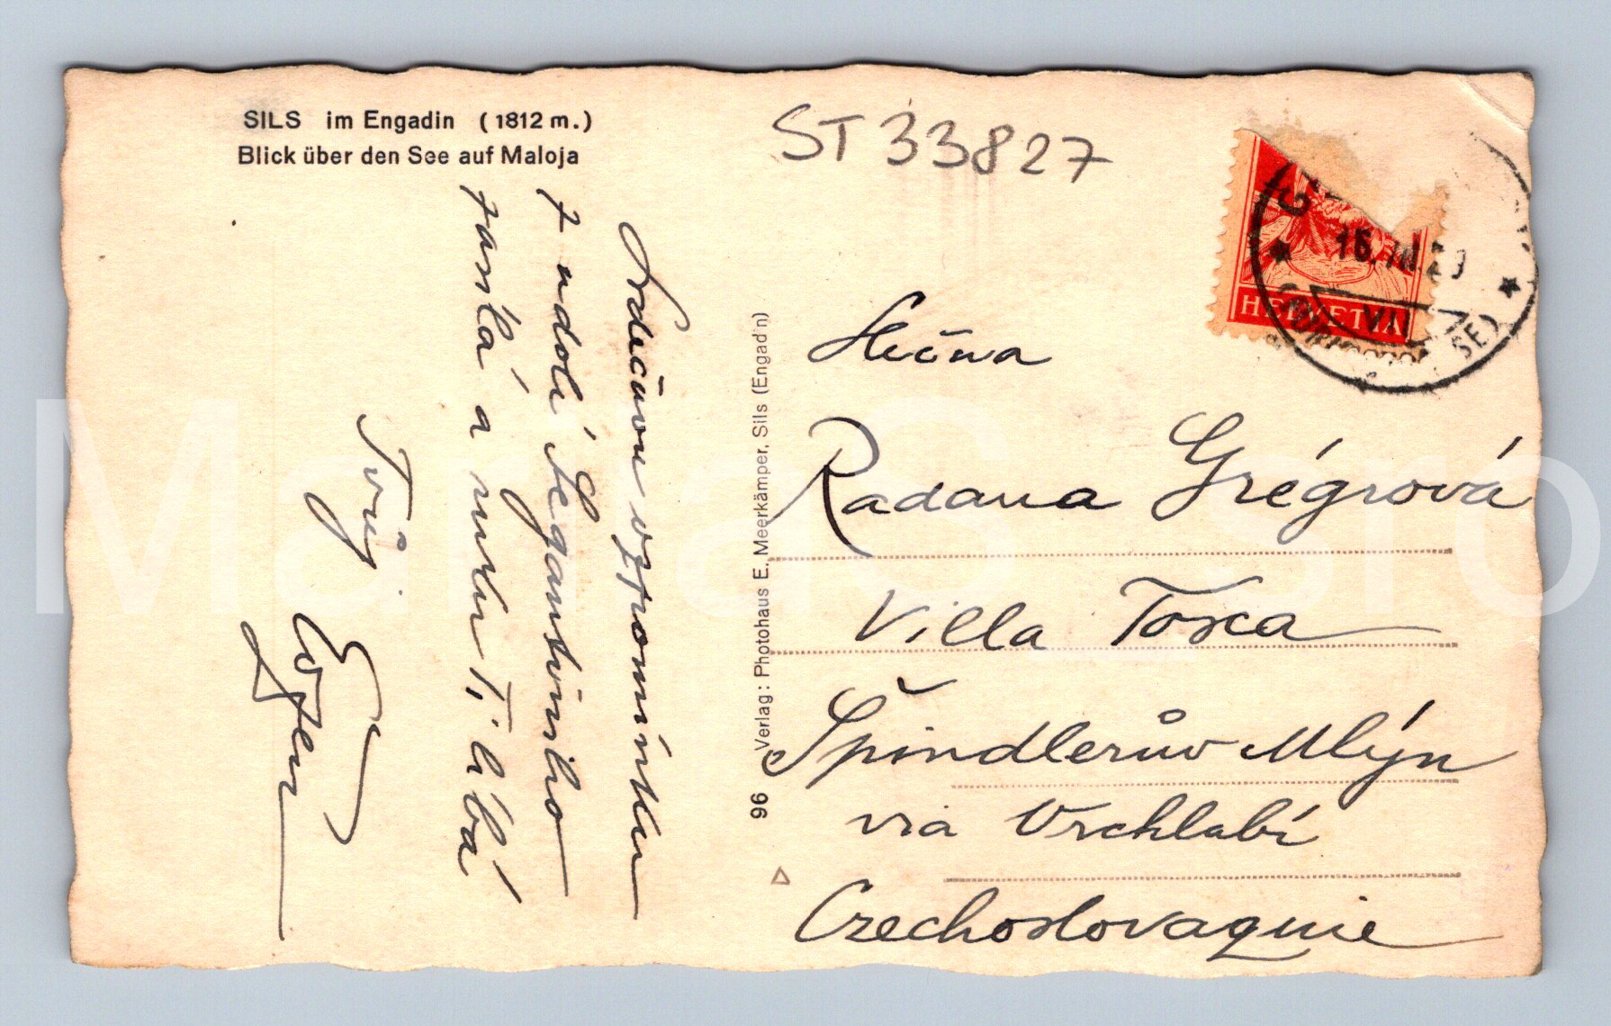 SILS im Engadin (1812 m.)
Blick über den See auf Maloja
ST 33827
HELVETIA
Srdečnou vzpomínku
z údolí Segantiniho
zasílá a ruku Ti líbá
Tvůj
Evžen
96 Verlag: Photohaus E. Meerkämper, Sils (Engadin)
Slečna
Radana Grégrová
Villa Tosca
Špindlerův Mlýn
via Vrchlabí
Czechoslovaquie